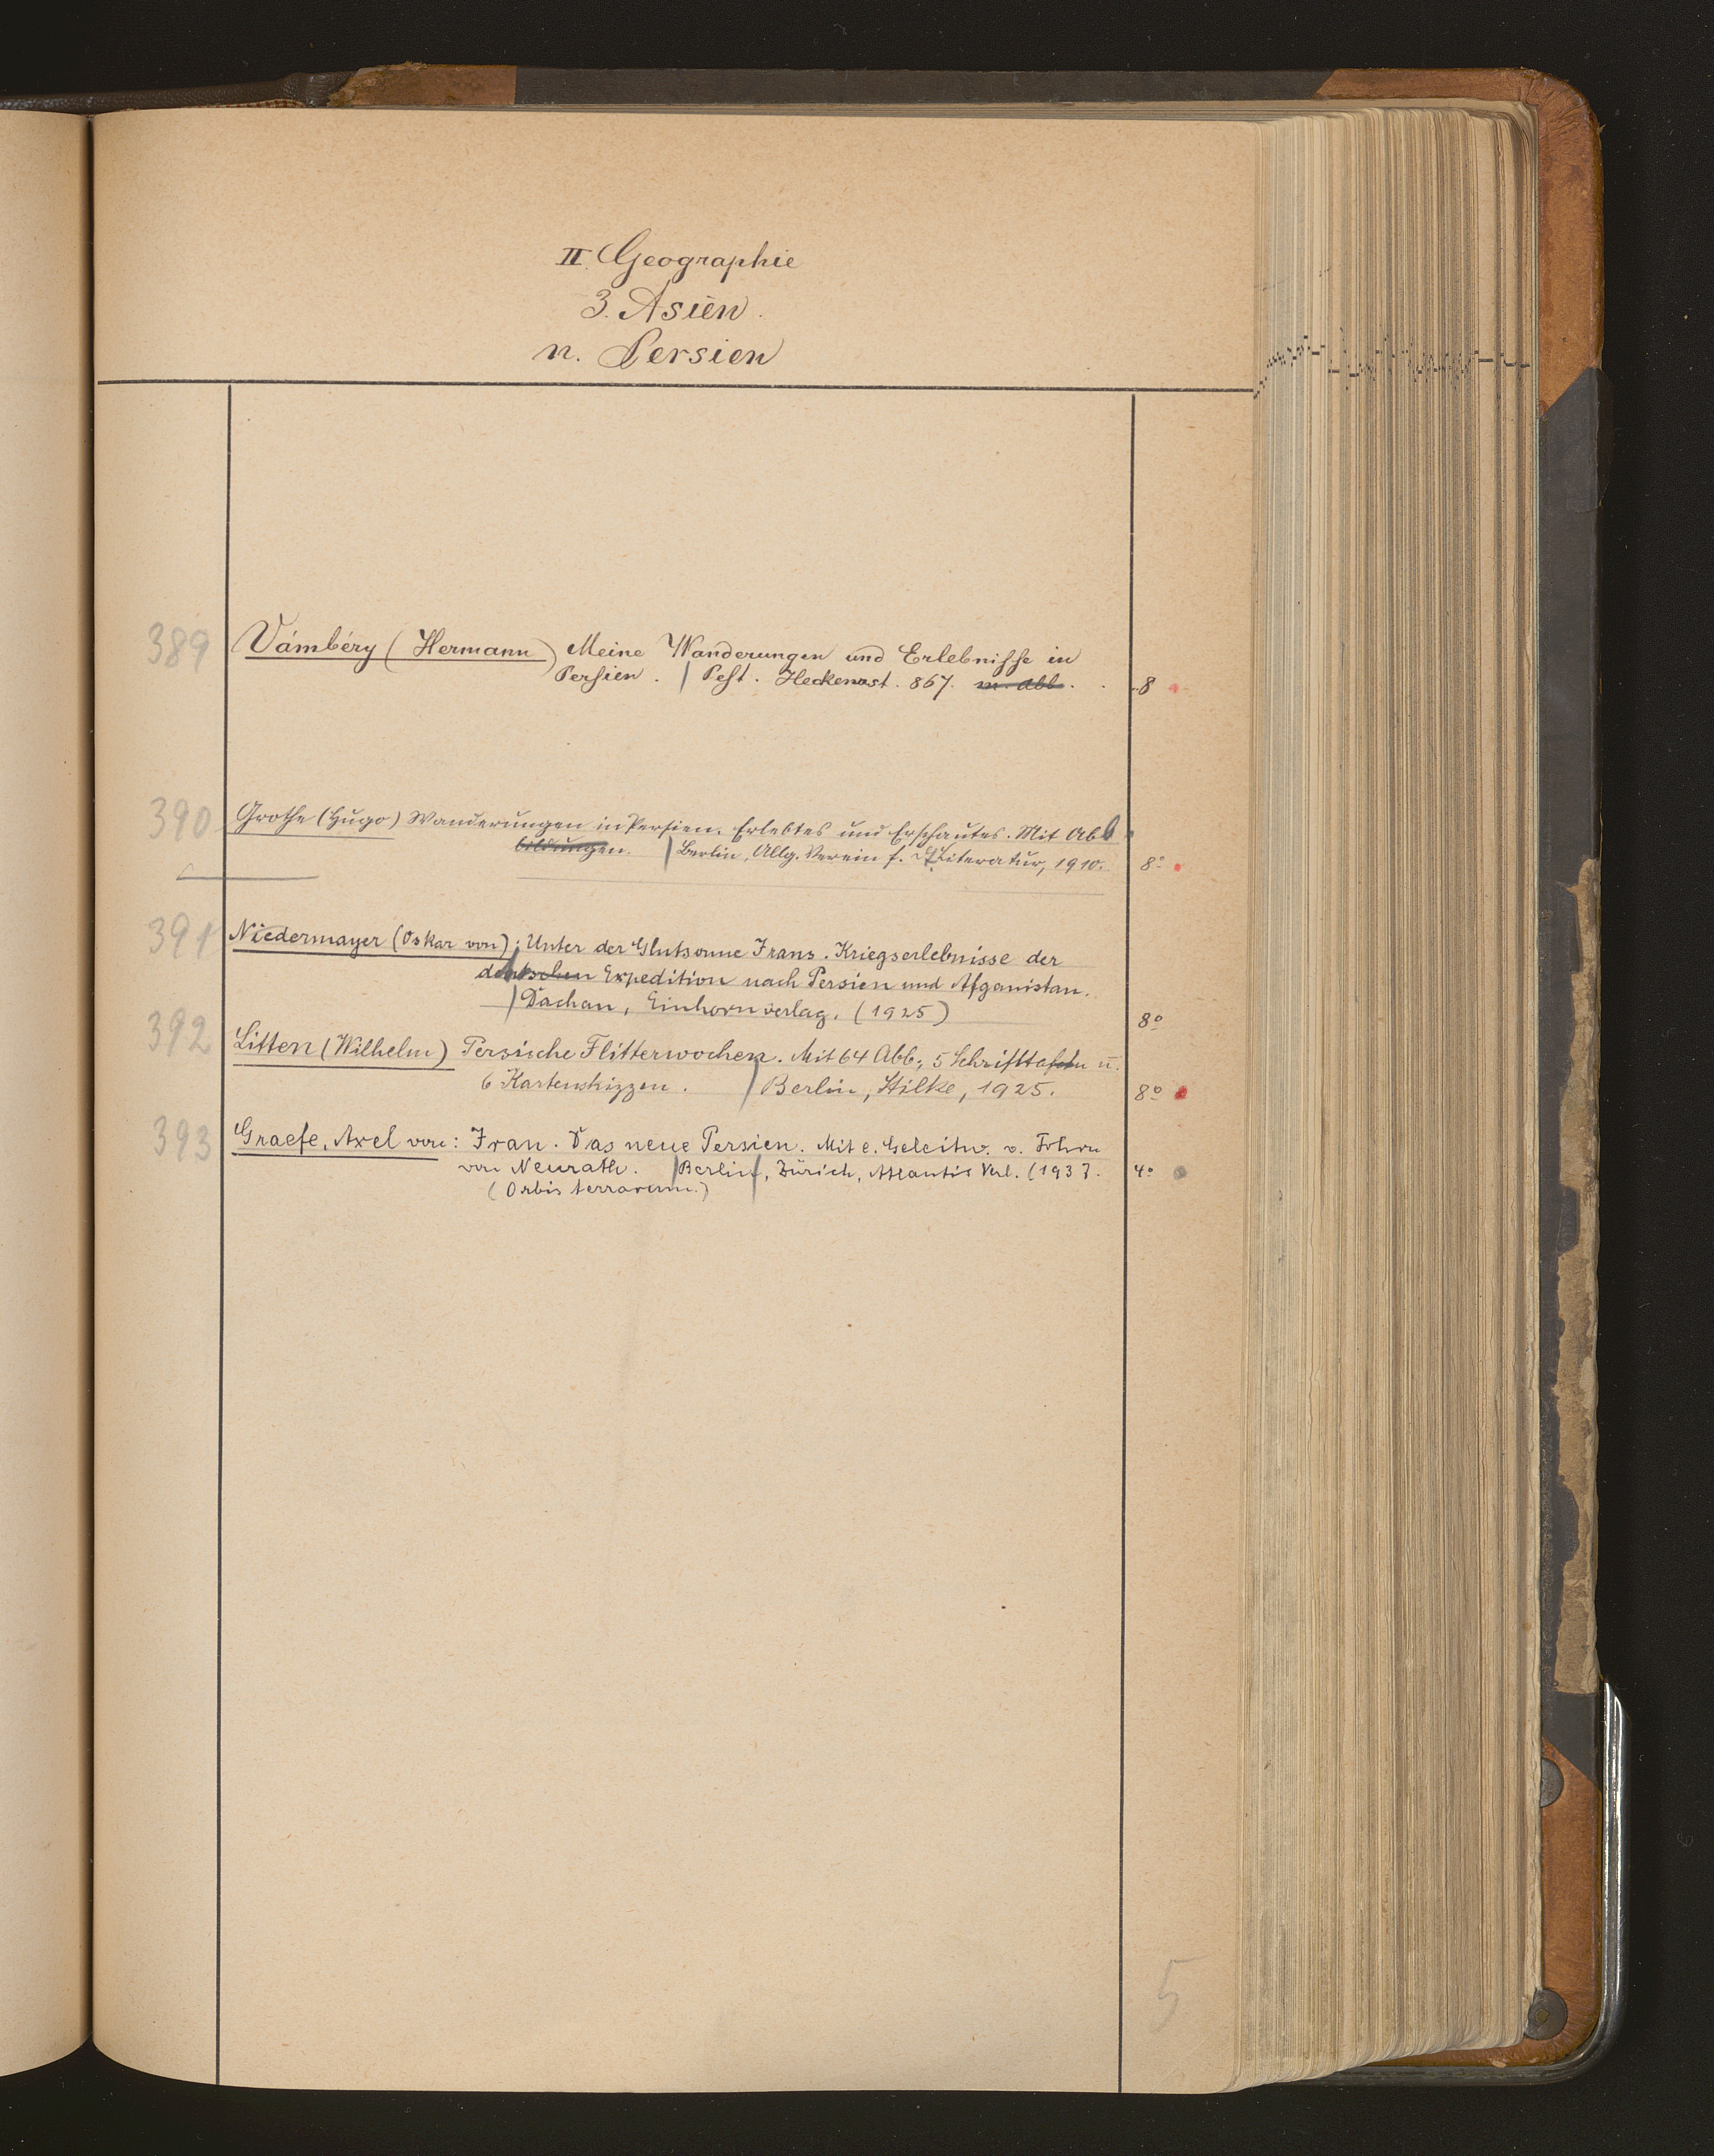 II. Geographie
3. Asien.
n. Persien
389 Vámbéry (Hermann) Meine Wanderungen und Erlebnisse in
Persien. | Pest. Heckenast. 867. m. Abb. 8
390 Grothe (Hugo) Wanderungen in Persien. Erlebtes und Erschautes. Mit Abb
bildungen. | Berlin, Allg. Verein f. Literatur, 1910. 8º
391 Niedermayer (Oskar von); Unter der Glutsonne Irans. Kriegserlebnisse der
deutschen Expedition nach Persien und Afganistan.
| Dachau, Einhornverlag. (1925) 8º
392 Litten (Wilhelm) Persische Flitterwochen. Mit 64 Abb., 5 Schrifttafeln u.
6 Kartenskizzen. | Berlin, Stilke, 1925. 8º
393 Graefe, Axel von: Iran. Das neue Persien. Mit e. Geleitw. v. Frhrn
von Neurath. | Berlin, Zürich, Atlantis Verl. (1937. 4º
(Orbis terrarum.)
5